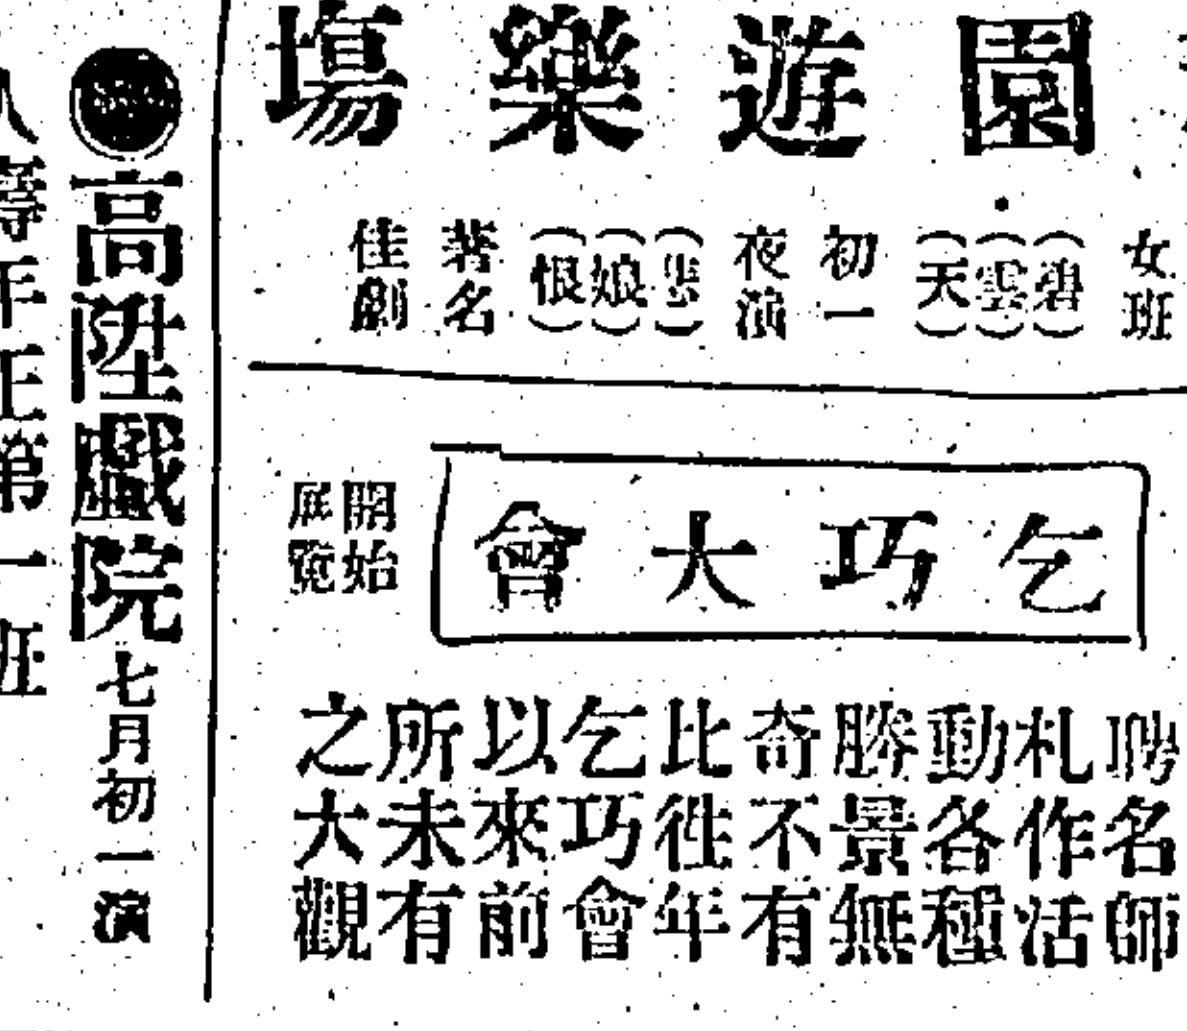 園遊樂塲
女班
(碧)(雲)(天)
初一
夜演
(悲)(娘)(恨)
著名
佳劇
乞巧大會
開始
展覽
聘名師
札作活
動各種
勝景無
奇不有
比徃年
乞巧會
以來前
所未有
之大觀
高陞戲院七月初一演
人壽年正第一班